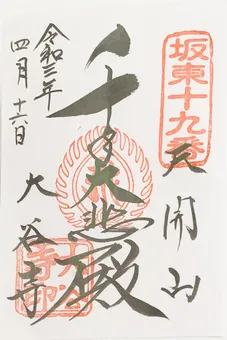 坂東十九番
天開山
千手大悲殿
令和三年
四月十六日
大谷寺